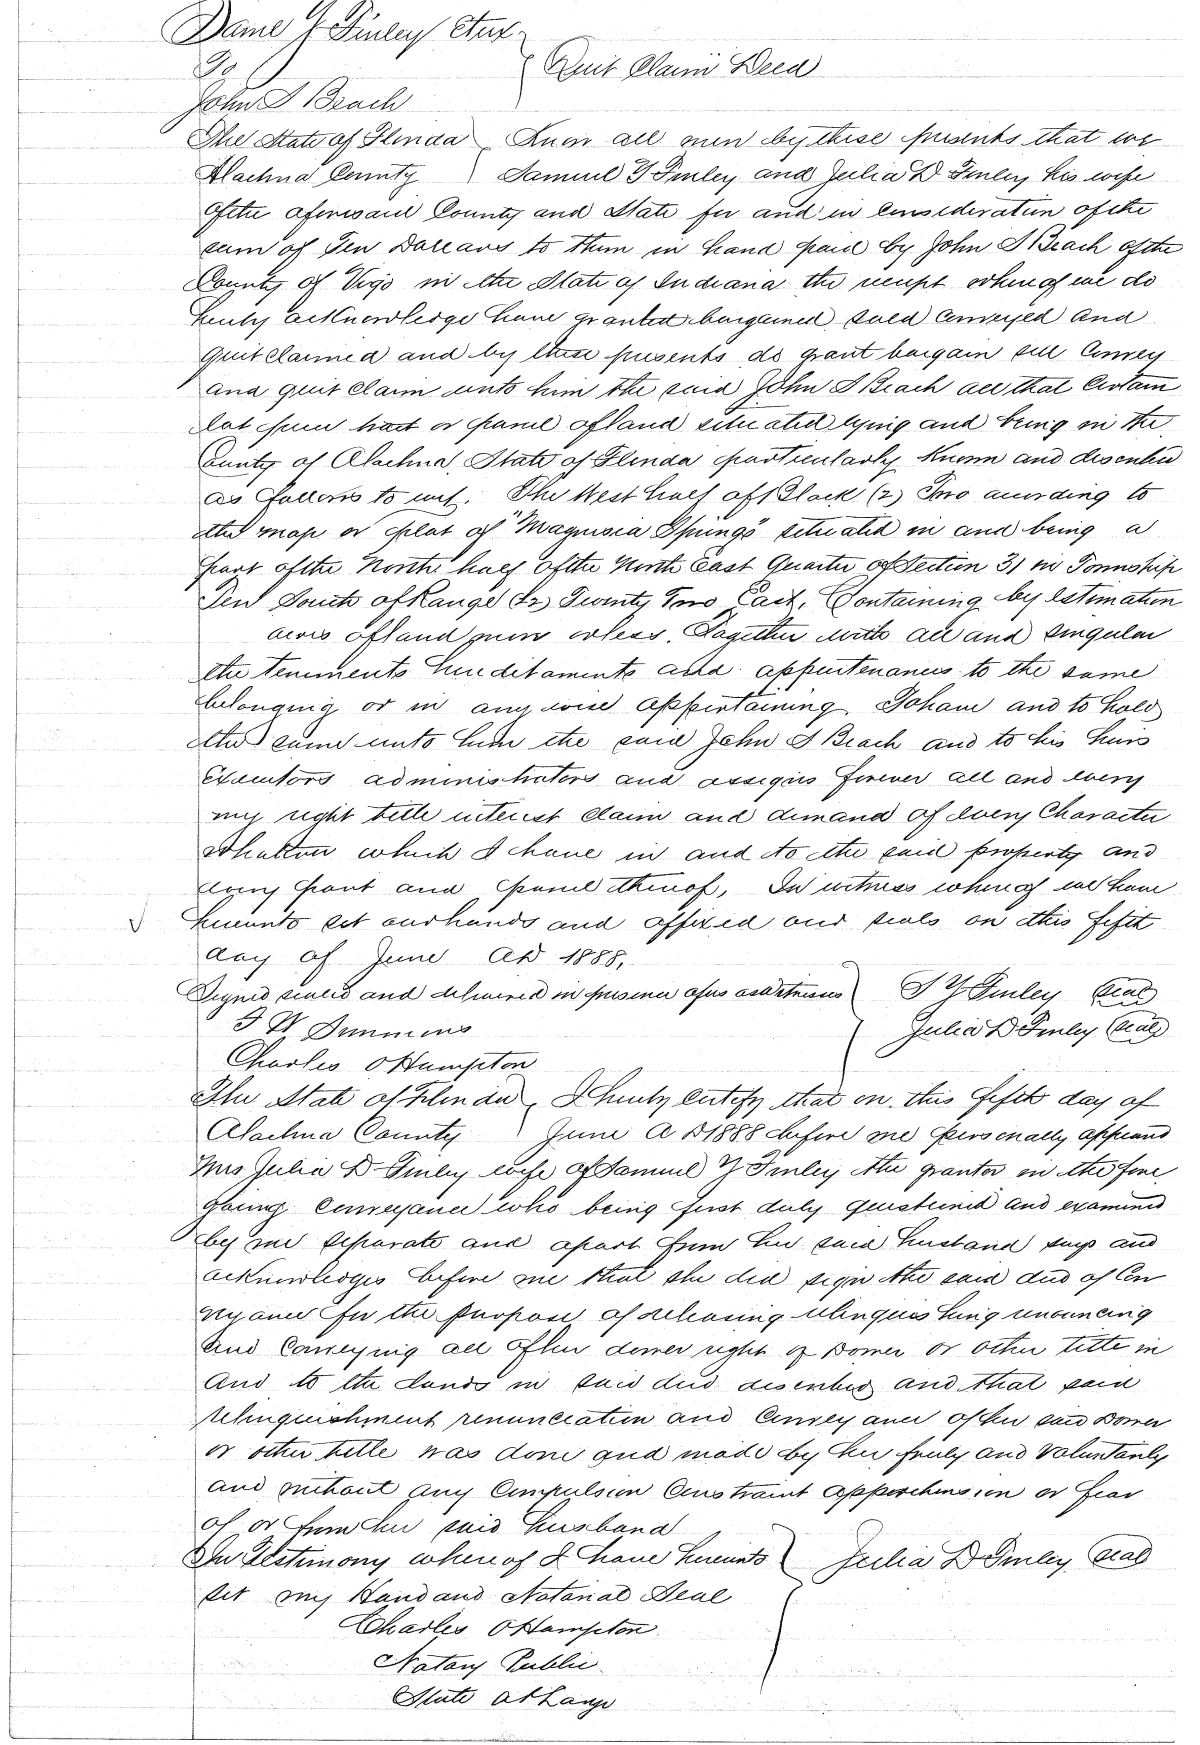 Saml Y Finley Etux
To } Quit Claim Deed
John S Beach
The State of Florida } Know all men by these presents that we
Alachua County } Samuel Y Finley and Julia D Finley his wife
ofthe aforesaid County and State for and in Consideration ofthe
sum of Ten Dollars to them in hand paid by John S Beach ofthe
County of Vigo in the State of Indiana the receipt whereof we do
hereby acknowledge have granted bargained sold Conveyed and
quitclaimed and by these presents do grant bargain sell Convey
and quit Claim unto him the said John S Beach all that Certain
lot piece tract or parcel ofland situated lying and being in the
County of Alachua State of Florida particularly Known and described
as follows to wit. The West half of Block (2) Two according to
the map or plat of "Magnesia Springs" situated in and being a
part ofthe North half ofthe North East Quarter of Section 31 in Township
Ten South of Range (22) Twenty Two East, Containing by estimation
acres ofland more orless. Together with all and singular
the tenements hereditaments and appurtenances to the same
belonging or in any wise appertaining. Tohave and to hold
the same unto him the said John S Beach and to his heirs
Executors administrators and assigns forever all and every
my right title interest Claim and demand of every Character
whatever which I have in and to the said property and
every part and parcel thereof, In witness whereof we have
hereunto set ourhands and affixed our seals on this fifth
day of June AD 1888,
Signed sealed and delivered in presence ofus asWitnesses } S Y Finley (Seal)
J W Simmons } Julia D Finley (Seal)
Charles O Hampton
The State of Florida } I hereby Certify that on this fifth day of
Alachua County } June A D 1888 before me personally appeared
Mrs Julia D Finley wife of Samuel Y Finley the grantor in the fore
going Conveyance who being first duly questioned and examined
by me separate and apart from her said husband says and
acknowledges before me that she did sign the said deed of Con
veyance for the purpose of releasing relinquishing renouncing
and Conveying all ofher dower right of Dower or other title in
and to the lands in said deed described and that said
relinquishment renunciation and Conveyance of her said Dower
or other title was done and made by her freely and Voluntarily
and without any Compulsion Constraint apprehension or fear
of or from her said husband
In Testimony whereof I have hereunto } Julia D Finley (Seal)
set my Hand and Notarial Seal
Charles O Hampton
Notary Public
State at Large